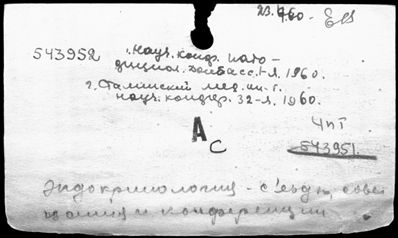 23.9.60.
543952 1. Науч. конф. пато-
физиол. Донбасс. 1-я. 1960.
2. Сталинский мед. ин-т.
науч. конфер. 32-я. 1960.
А
С
ЧПТ
543951.
Эндокринология - съезды, сове
щания и конференции